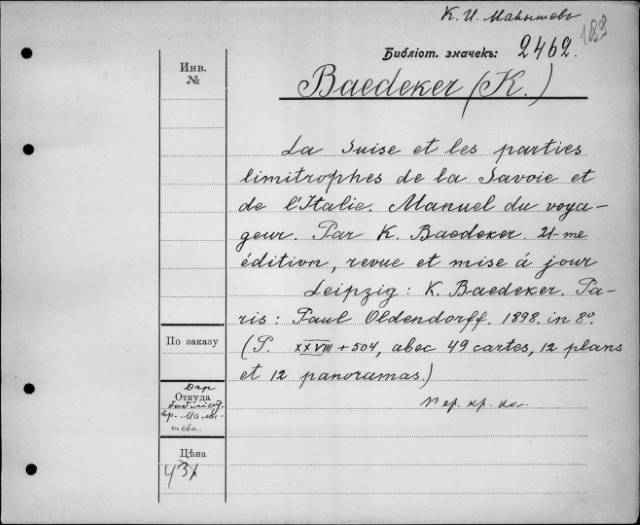 К. И. Малышевъ
183
Библіот. значекъ: 2462.
Инв.
№
Baedeker (K.)
La Suise et les parties
limitrophes de la Savoie et
de l'Italie. Manuel du voya-
geur. Par K. Baedeker. 21-me
édition, revue et mise á jour
Leipzig: K. Baedeker. Pa-
ris: Paul Oldendorff. 1898. in 8º.
(P. XXVIII + 504, abec 49 cartes, 12 plans
et 12 panoramas.)
По заказу
Даръ
Откуда
пр. Малы-
шева.
Цѣна
пер. кр.